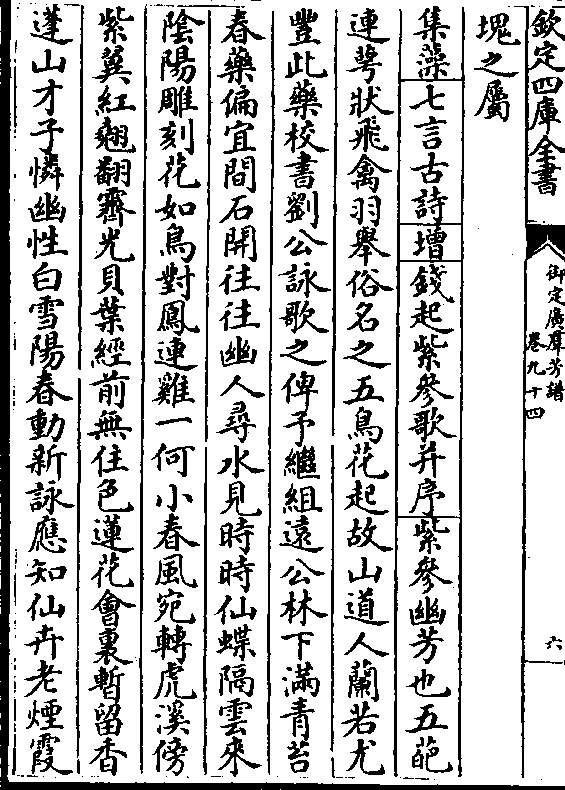 欽定四庫全書
御定廣羣芳譜
卷九十四
六
塊之屬
集藻七言古詩增錢起紫參歌并序紫參幽芳也五葩
連萼狀飛禽羽舉俗名之五鳥花起故山道人蘭若尤
豐此藥校書劉公詠歌之俾予繼組遠公林下滿青苔
春藥偏宜間石開往往幽人尋水見時時仙蝶隔雲來
陰陽雕刻花如鳥對鳳連雞一何小春風宛轉虎溪傍
紫翼紅翹翻霽光貝葉經前無住色蓮花會裏暫留香
蓬山才子憐幽性白雪陽春動新詠應知仙卉老煙霞